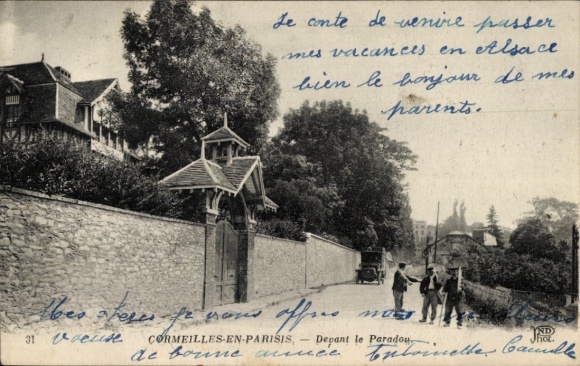 Je conte de venire passer
mes vacances en Alsace
bien le bonjour de mes
parents.
je vous offrs
de bonne année Antoinette Camille
31 CORMEILLES-EN-PARISIS. — Devant le Paradou.
ND
Phot.